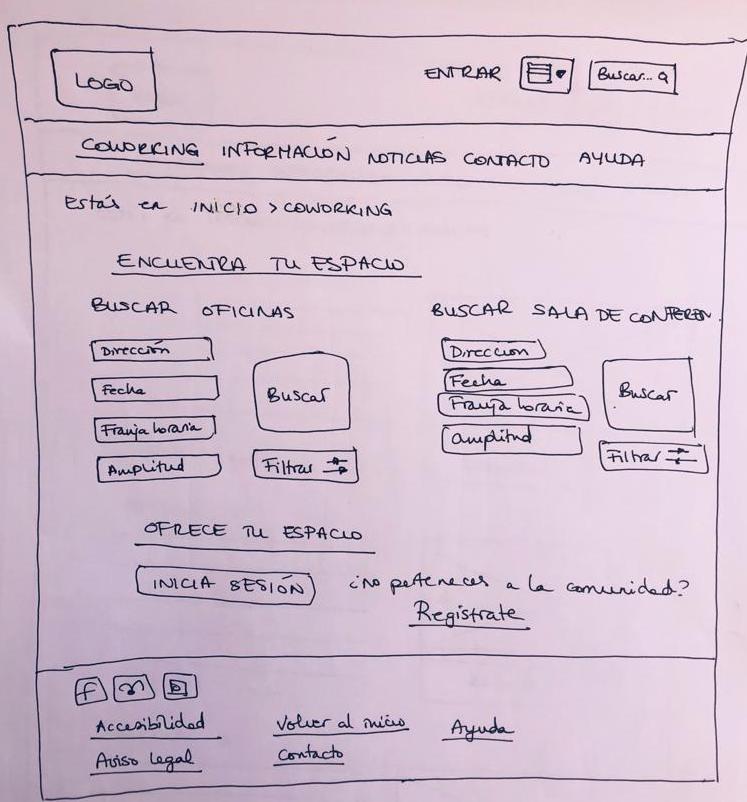 LOGO
ENTRAR
Buscar...
COWORKING INFORMACIÓN NOTICIAS CONTACTO AYUDA
Estás en INICIO > COWORKING
ENCUENTRA TU ESPACIO
BUSCAR OFICINAS
Dirección
Fecha
Franja horaria
Amplitud
Buscar
Filtrar
BUSCAR SALA DE CONFEREN.
Dirección
Fecha
Franja horaria
amplitud
Buscar
Filtrar
OFRECE TU ESPACIO
INICIA SESIÓN
¿no perteneces a la comunidad?
Registrate
f
Accesibilidad
Volver al inicio
Ayuda
Aviso legal
Contacto